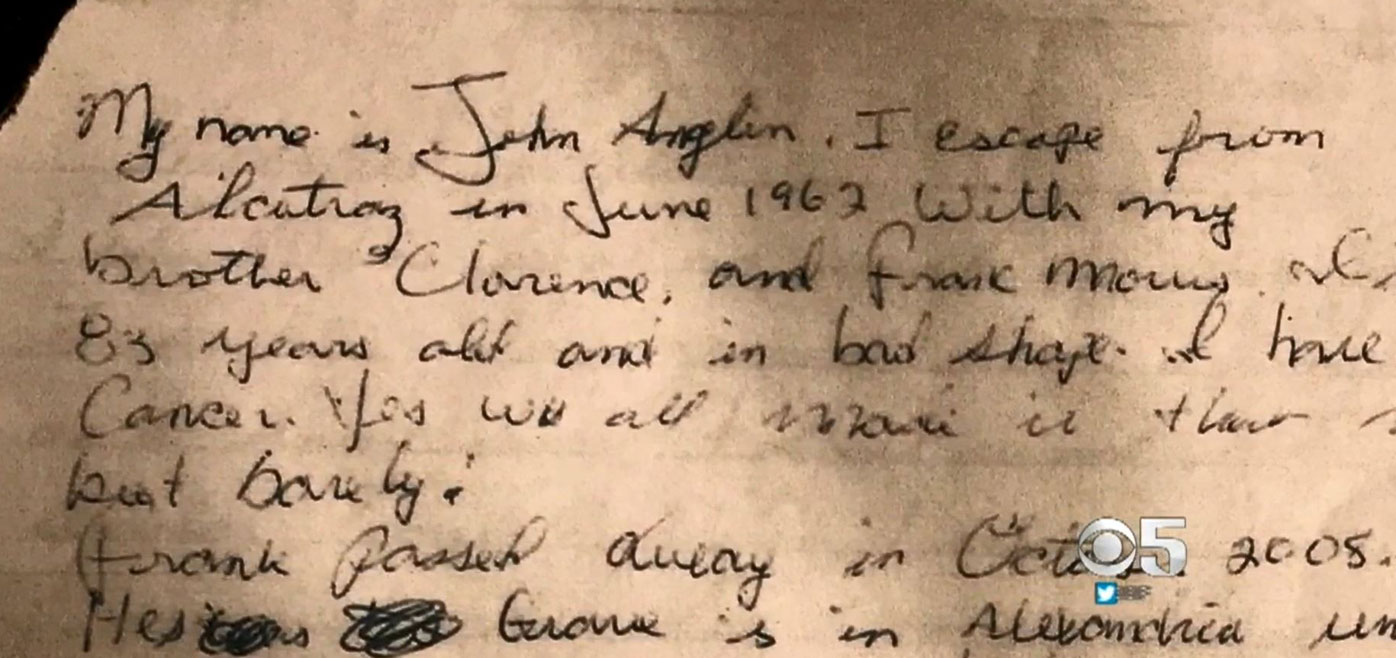 My name is John Anglin. I escape from
Alcatraz in June 1962 With my
brother Clarence, and Frank Morris. I
83 years old and in bad shape. I have
Cancer. Yes we all made it that
but barely!
Frank passed away in October 2008.
Hes Grave is in Alexandria un
5